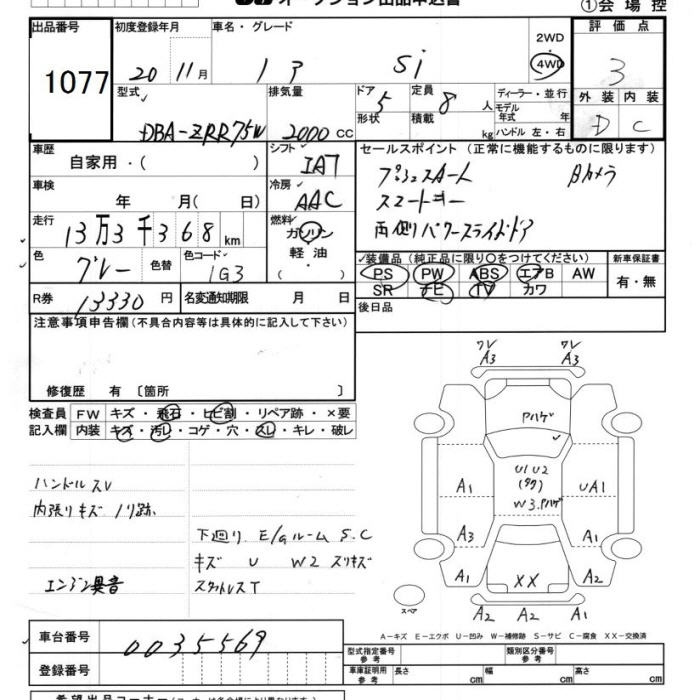 オークション出品申込書
①会場控
出品番号
1077
初度登録年月
20年11月
車名・グレード
Si
2WD
4WD
評価点
3
型式
DBA-ZRR75W
排気量
2000 CC
ドア
5
形状
定員
8人
積載
kg
ディーラー・並行
モデル年式 年
ハンドル 左・右
外装
内装
D
C
車歴
自家用・( )
シフト
IAT
セールスポイント (正常に機能するものに限ります)
プッシュスタート
Bカメラ
スマートキー
両側パワースライドドア
車検
年 月( 日)
冷房
AAC
走行
13万3千368km
燃料
ガソリン
軽油
( ・ )
色
グレー
色替
色コード
1G3
✓装備品 (純正品に限り○をつけてください)
PS PW ABS エアB AW
SR ナビ TV カワ
新車保証書
有・無
R券
13330円
名変通知期限 月 日
後日品
注意事項申告欄(不具合内容等は具体的に記入して下さい)
修復歴 有 〔箇所 〕
検査員記入欄
FW キズ・飛石・ヒビ割・リペア跡・×要
内装 キズ・汚レ・コゲ・穴・スレ・キレ・破レ
ハンドルスレ
内張りキズ ノリ跡
エンジン異音
下廻り E/gルーム S.C
キズ U W2 スリキズ
スタットレスT
ワレ
A3
ワレ
A3
Pハゲ
U1 U2
W3.Pハゲ
A1
UA1
A3
A1
A1
XX
A2
スペア
A2 A2 A1
A-キズ E-エクボ U-凹み W-補修跡 S-サビ C-腐食 XX-交換済
車台番号
0035569
登録番号
型式指定番号
参考
類別区分番号
参考
車庫証明用
参考
長さ cm
幅 cm
高さ cm
希望出品コーナー